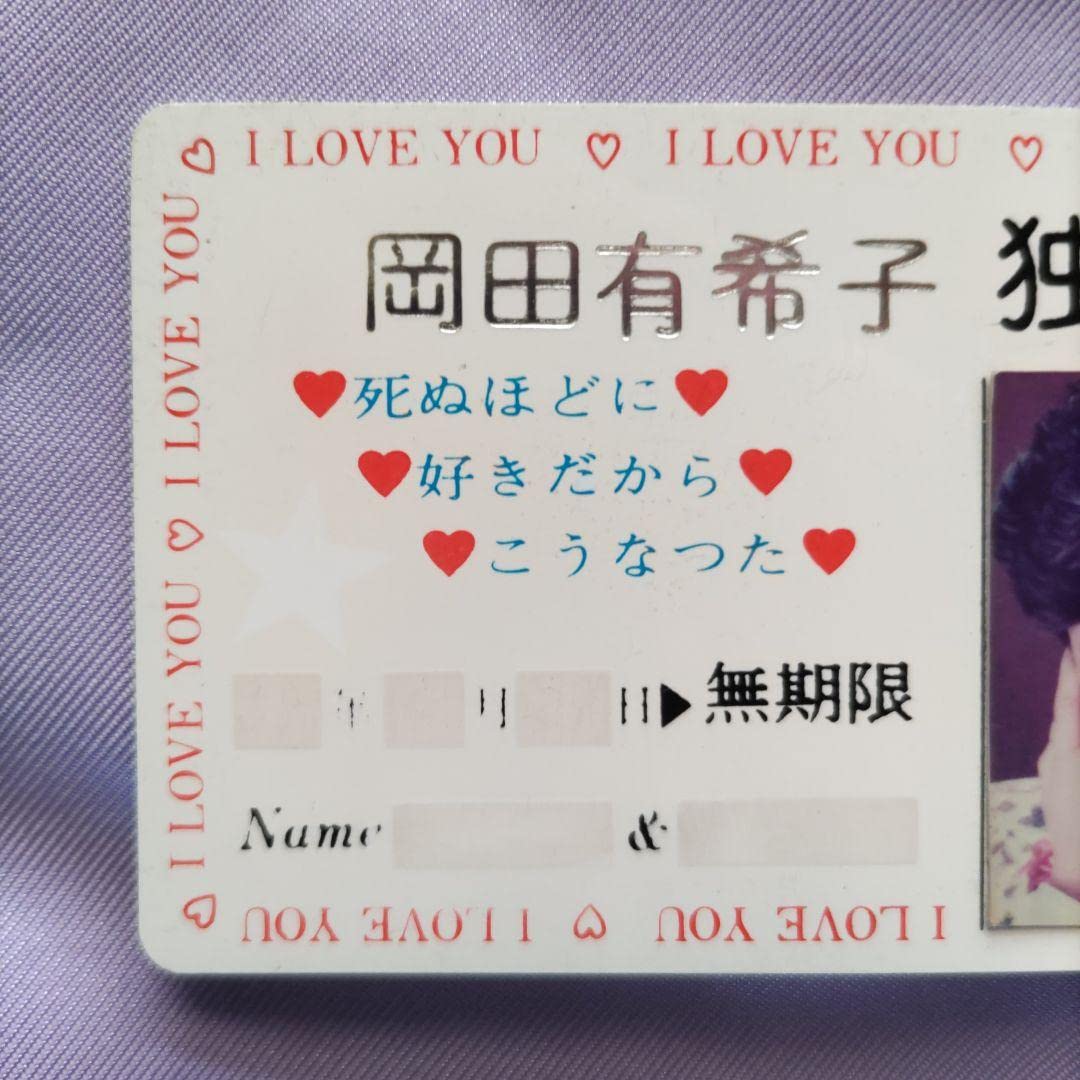 I LOVE YOU ♡ I LOVE YOU ♡
岡田有希子 独
♥死ぬほどに♥
♥好きだから♥
♥こうなつた♥
年 月 日▶無期限
Name &
I LOVE YOU ♡ I LOVE YOU ♡
I LOVE YOU ♡ I LOVE YOU